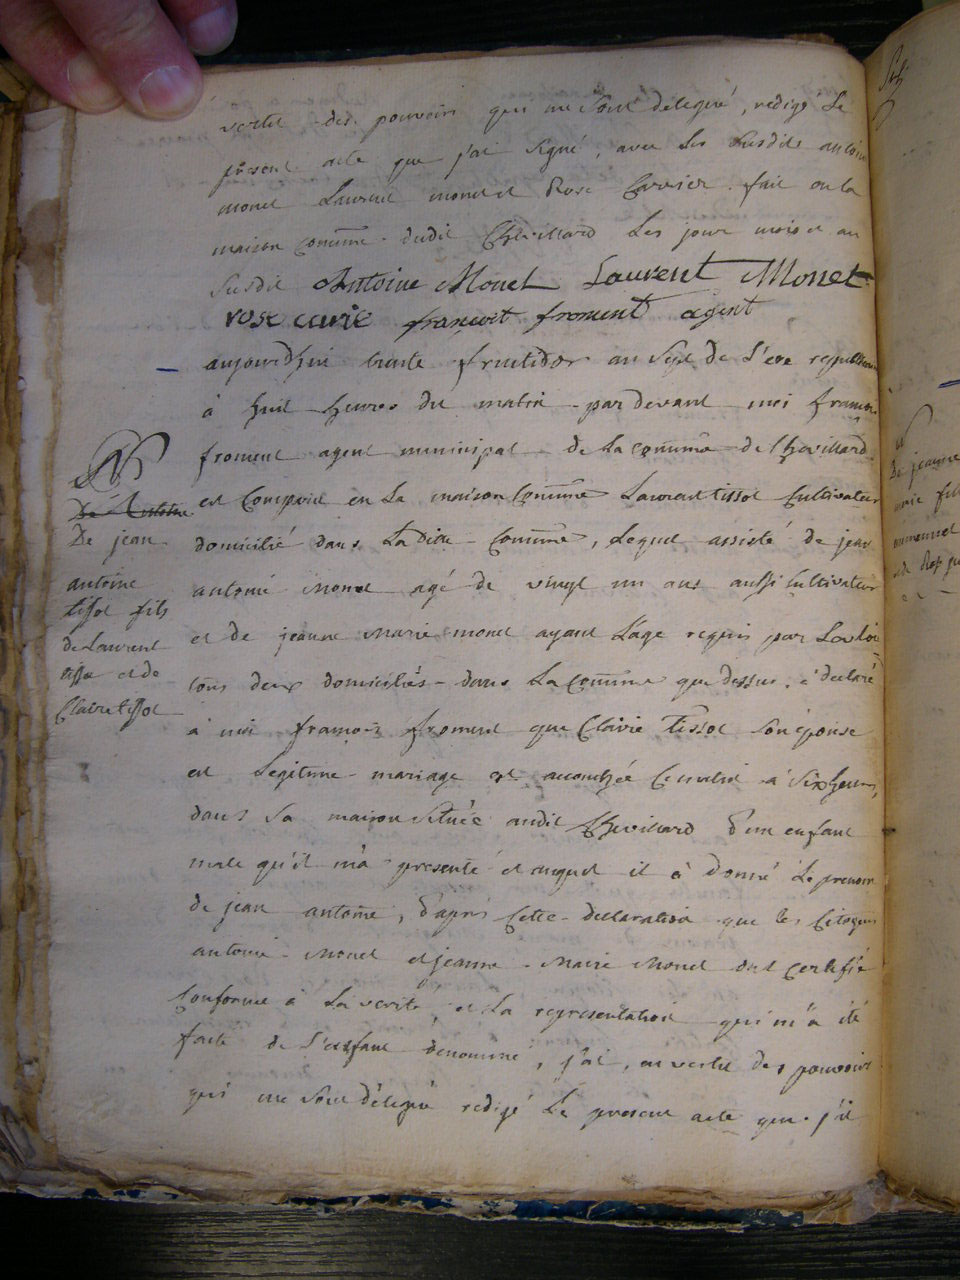 vertu des pouvoirs qui me sont delegué, redigé le
présent acte que j'ai signé, avec les susdits antoine
monet Laurent monet et Rose Carrier. fait en la
maison comũne dudit Chevillard les jour mois et an
susdit Antoine Monet Laurent Monet
rose carie françoit froment agent
aujourd'hui trente fructidor an sept de l'ere republicaine
à huit heures du matin pardevant moi françois
froment agent municipal de la comũne de Chevillard
est Comparu en la maison Comũne Laurent tissot Cultivateur
domicilié dans Ladite Comũne, Lequel assisté de jean
antoine monet agé de vingt un ans aussi Cultivateur
et de jeanne Marie monet ayant L'age requis par La loi
tous deux domiciliés dans La Comũne que dessus, a déclaré
à moi françois froment que Claire Tissot son épouse
en legitime mariage est accouchée ce matin à six heures,
dans sa maison située audit Chevillard d'un enfant
male qu'il m'a presenté et auquel il à donné le prenom
de jean antoine, d'après cette declaration que les Citoyens
antoine monet et jeanne Marie Monet ont certifié
Conforme à La verité, et La representation qui m'a été
faite de l'enfant denommé, j'ai, en vertu des pouvoirs
qui me sont délegué redigé Le present acte que j'ai
N
De Antoine
De jean
antoine
tissot fils
de Laurent
tissot et de
Claire tissot
De jeanne
marie fille